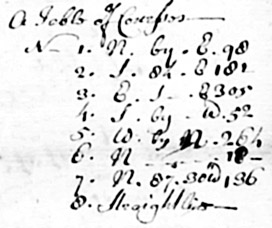 A Table of Courses
N 1. N. by. E. 98
2. S. 84. E 181
3. E. S E 305
4. S. by. W. 52
5. W. by N. 264
6. N 18
7. N. 87. 30 W 136
8. Straight line